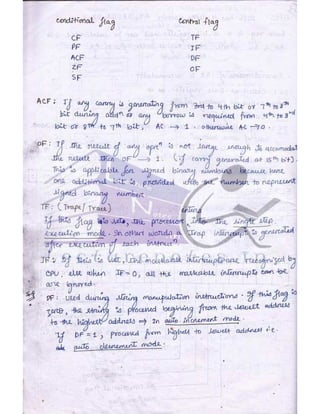 conditional flag Control flag
CF TF
PF IF
ACF DF
ZF OF
SF
ACF : If any carry is generating from 3rd to 4th bit or 7th to 8th
bit during addn or any borrow is required from 4th to 3rd
bit or 8th to 7th bit, AC → 1 . otherwise AC → 0.
OF : If the result of any oprn is not large enough to accomodate
the result then OF → 1. (if carry generated at 8th bit).
This is applicable for signed binary numbers because here
one additional bit is provided with the number to represent
signed binary number.
TF : (Trape / Trace)
If this flag is set, the processor enters the single step
execution mode. In other words, a trap interrupt is generated
after execution of each instruct
IF : If this is set, the maskable interrupts are recognized by
CPU, else when IF=0, all the maskable interrupts can be
are ignored.
DF : Used during string manupulation instructions. If this flag is
zero, the string is processed beginning from the lowest address
to the highest address → In auto increment mode.
If DF = 1, processed from highest to lowest address i.e.
auto decrement mode.